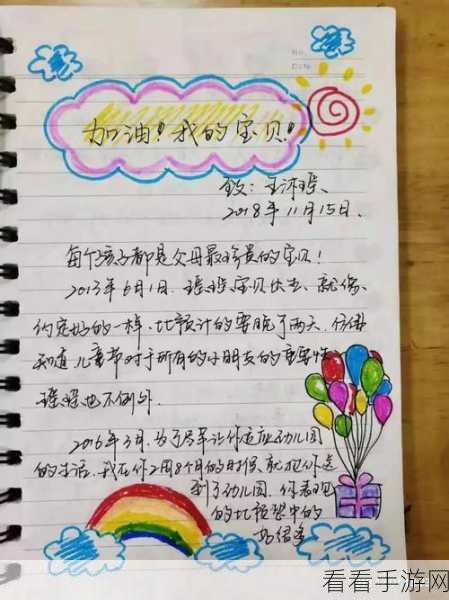 加油！我的宝贝！
致：王沐瑶、
2018年11月15日.
每个孩子都是父母最珍贵的宝贝！
2013年6月1日.瑶瑶宝贝出生、就像、
约定好的一样、比预计的要晚了两天.仿佛
知道儿童节对于所有的小朋友的重要性
瑶瑶也不例外.
2016年3月.为了尽早让你适应幼儿园
的生活.我在你2周8个月的时候、就把你送
到了幼儿园.你表现
的比预想中的
好很多
看看手游网